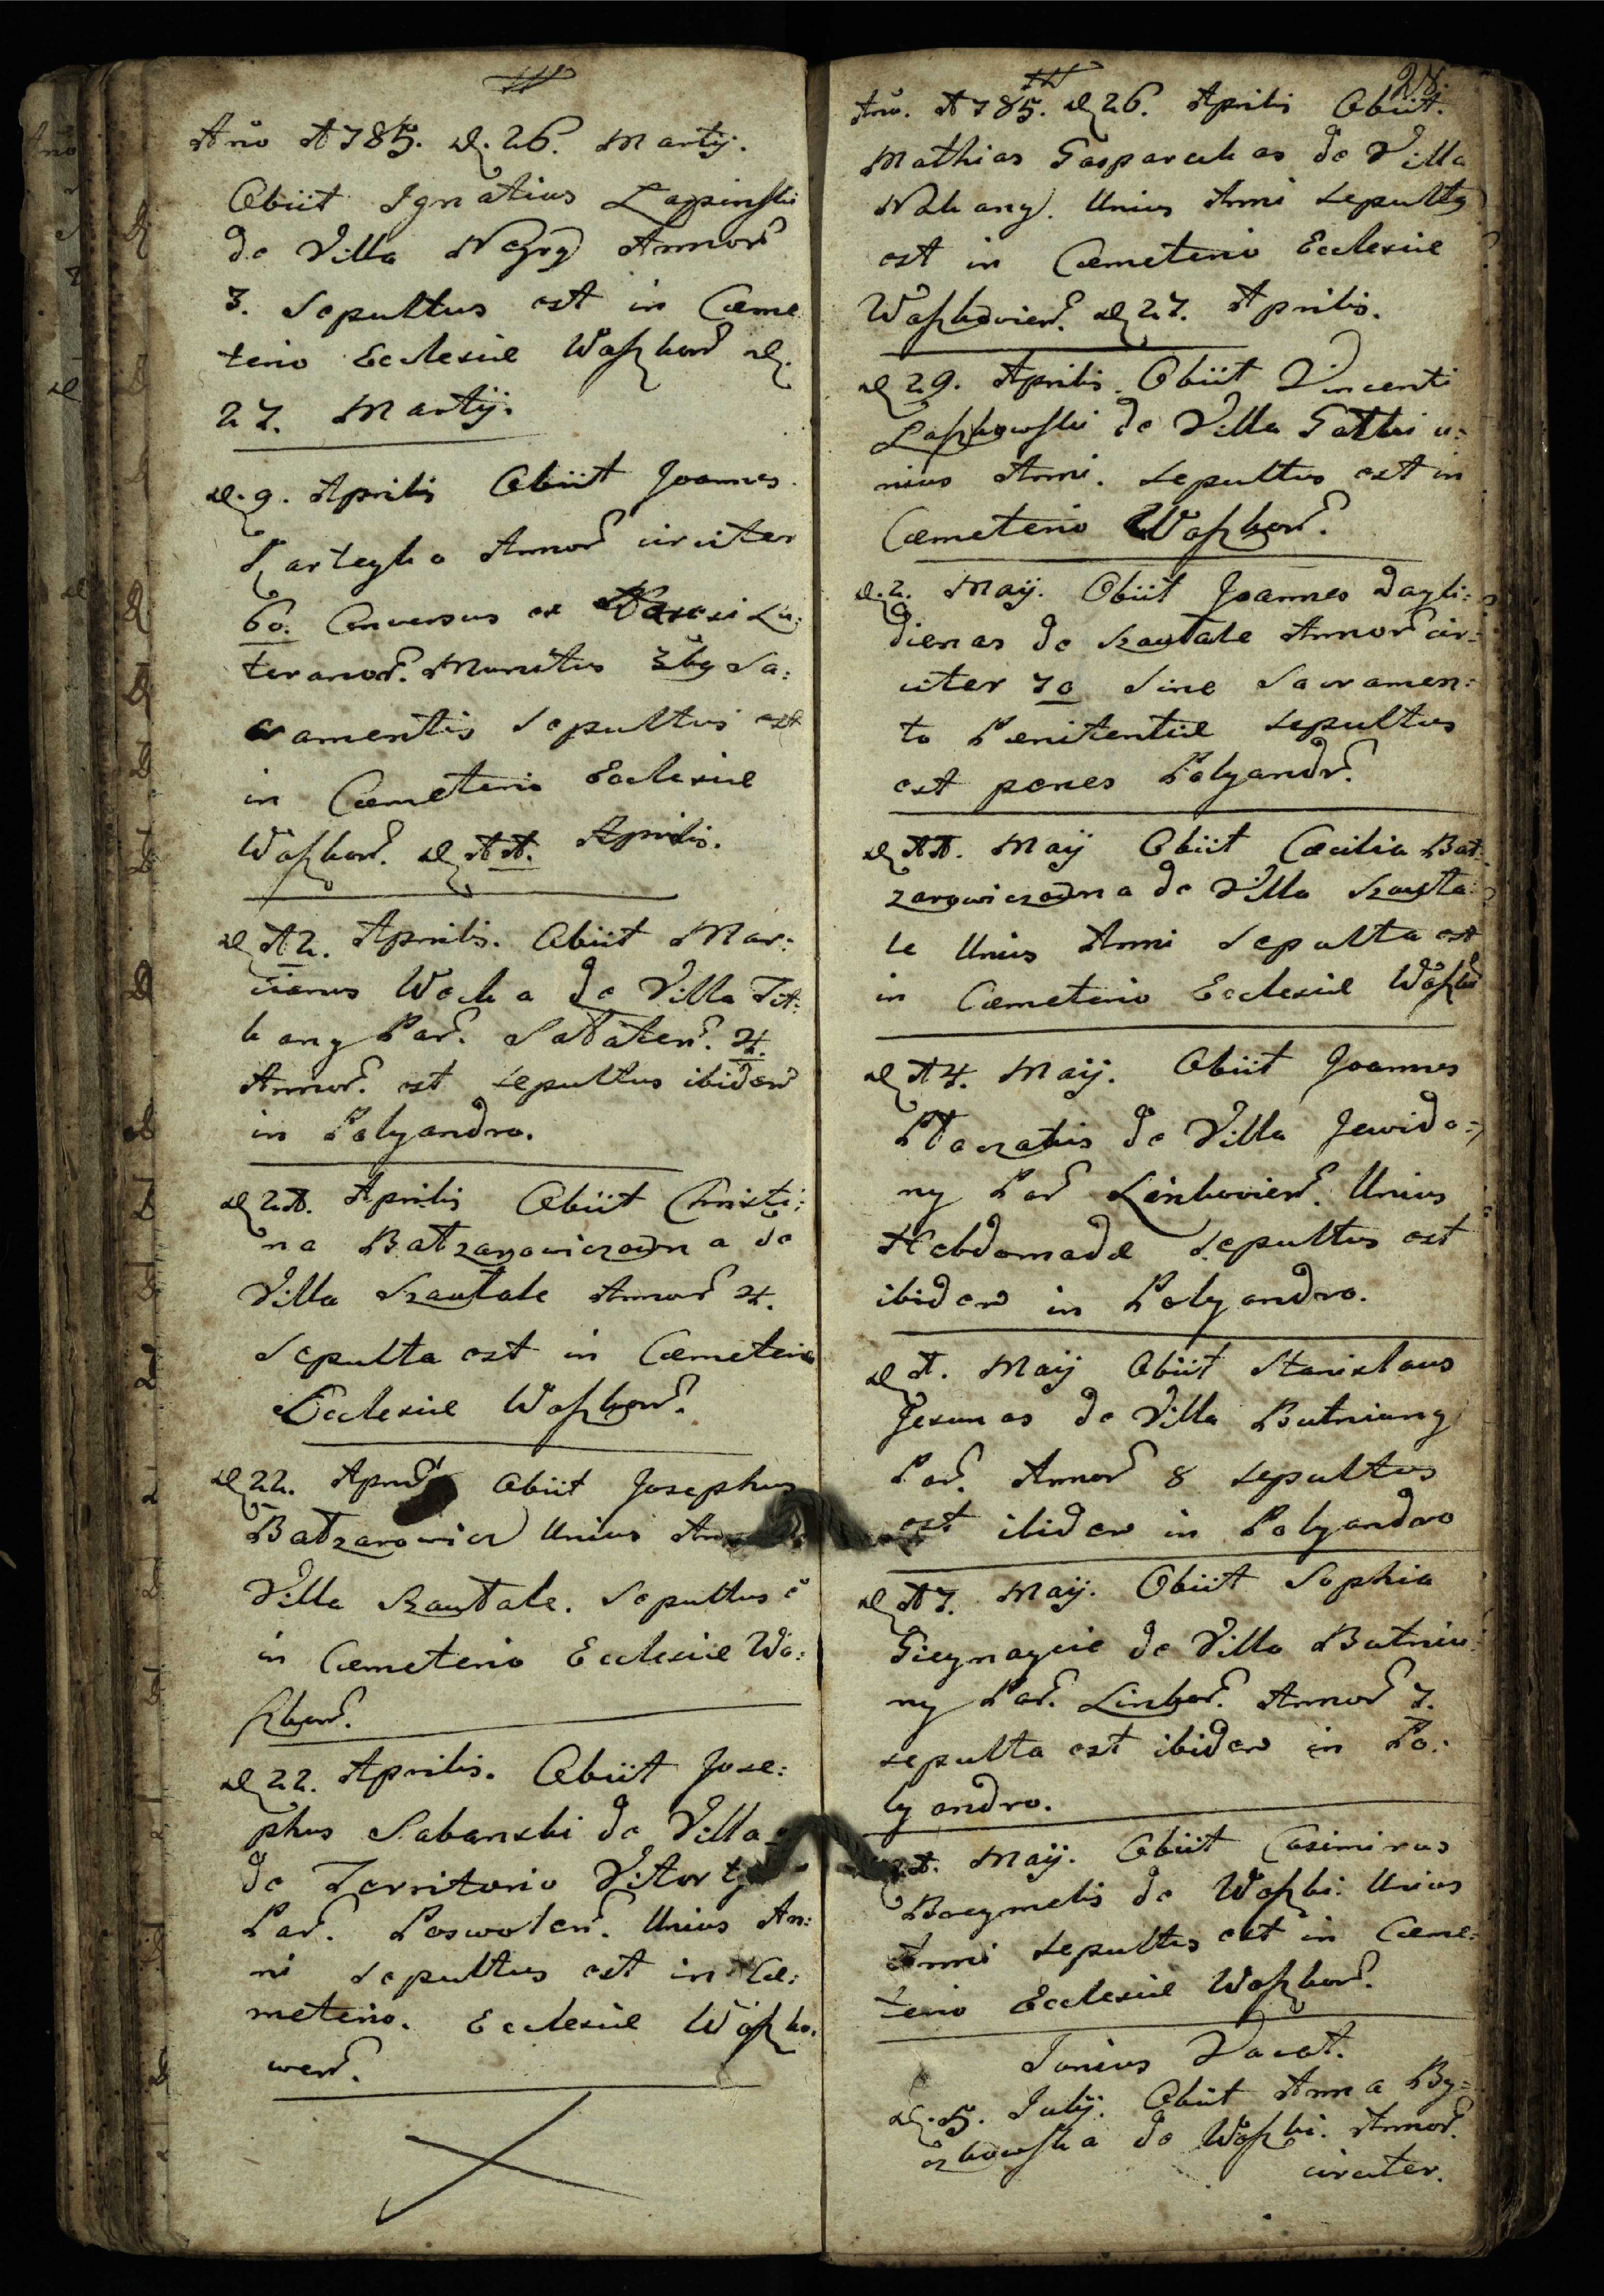 Año 1785. d. 26. Martij.
Obiit Ignatius Łapinski
de Villa Negry Annor̃
3. Sepultus est in Cæme
terio Ecclesiæ Waszkow̃ d.
27. Martij.
d. 9. Aprilis Obiit Joannes
Annor̃ circiter
60. Conversus ex Hæresi Lu:
teranor̃. Munitus 3bg Sa:
cramentis Sepultus est
in Cæmeterio Ecclesiæ
Waszkow̃. d 11. Aprilis.
d 12. Aprilis. Obiit Mar:
cianus Wecka de Villa Tot:
kany Par̃. Sałateñ. 4.
Annor̃. est sepultus ibidem̃
in Polyandro.
d 21. Aprilis Obiit Christi:
na Bałzarowiczowna de
Villa Szawtale Annor̃ 4.
Sepulta est in Cæmeterio
Ecclesiæ Waszkow̃.
d 22. Apriłs Obiit Josephus
Bałzarowicz Unius
Villa Szawtale. Sepultus ẽ
in Cæmeterio Ecclesiæ Wa:
szkow̃.
d 22. Aprilis. Obiit Jose:
phus Sabanski de Villa
de Territorio
Par̃. Poswoleñ. Unius An:
ni sepultus est in Cæ:
meterio. Ecclesiæ Waszko.
weñ.
28.
Año. 1785. d 26. Aprilis Obiit.
Mathias Gasparckas de Villa
Nakany. Unius Anni Sepultg
est in Cæmeterio Ecclesiæ
Waszkowieñ. d 27. Aprilis.
d 29. Aprilis. Obiit Vincenti
Laszkowski de Villa Gałki u:
nius Anni. Sepultus est in
Cæmeterio Waszkow̃.
d. 2. Maij. Obiit Joannes Dayli:
dienas de Szawtale Annor̃ cir:
citer 70 Sine Sacramen:
to Pænitentiæ Sepultus
est penes Polyandr̃.
d 11. Maij Obiit Cæcilia Bał:
zarowiczowna de Villa Szawta:
le Unius Anni Sepulta est
in Cæmeterio Ecclesiæ Waszkow̃
d 14. Maij. Obiit Joannes
de Villa Jewido:
ny Par̃ Linkowieñ. Unius
Hebdomadæ Sepultus est
ibidem̃ in Polyandro.
d 1. Maij Obiit Stanislaus
Jesunas de Villa Butniuny
Par̃. Annor̃ 8 Sepultus
est ibidem̃ in Polyandro
d 17. Maij. Obiit Sophia
de Villa Butniu:
ny Par̃. Linkow̃. Annor̃ 7.
sepulta est ibidem̃ in Po:
lyandro.
Maij. Obiit Casimirus
de Waszki. Unius
Anni Sepultus est in Cæme:
terio Ecclesiæ Waszkow̃.
Junius Vacat.
d. 5. Julij. Obiit Anna By:
czkowska de Waszki. Annor̃.
circiter.